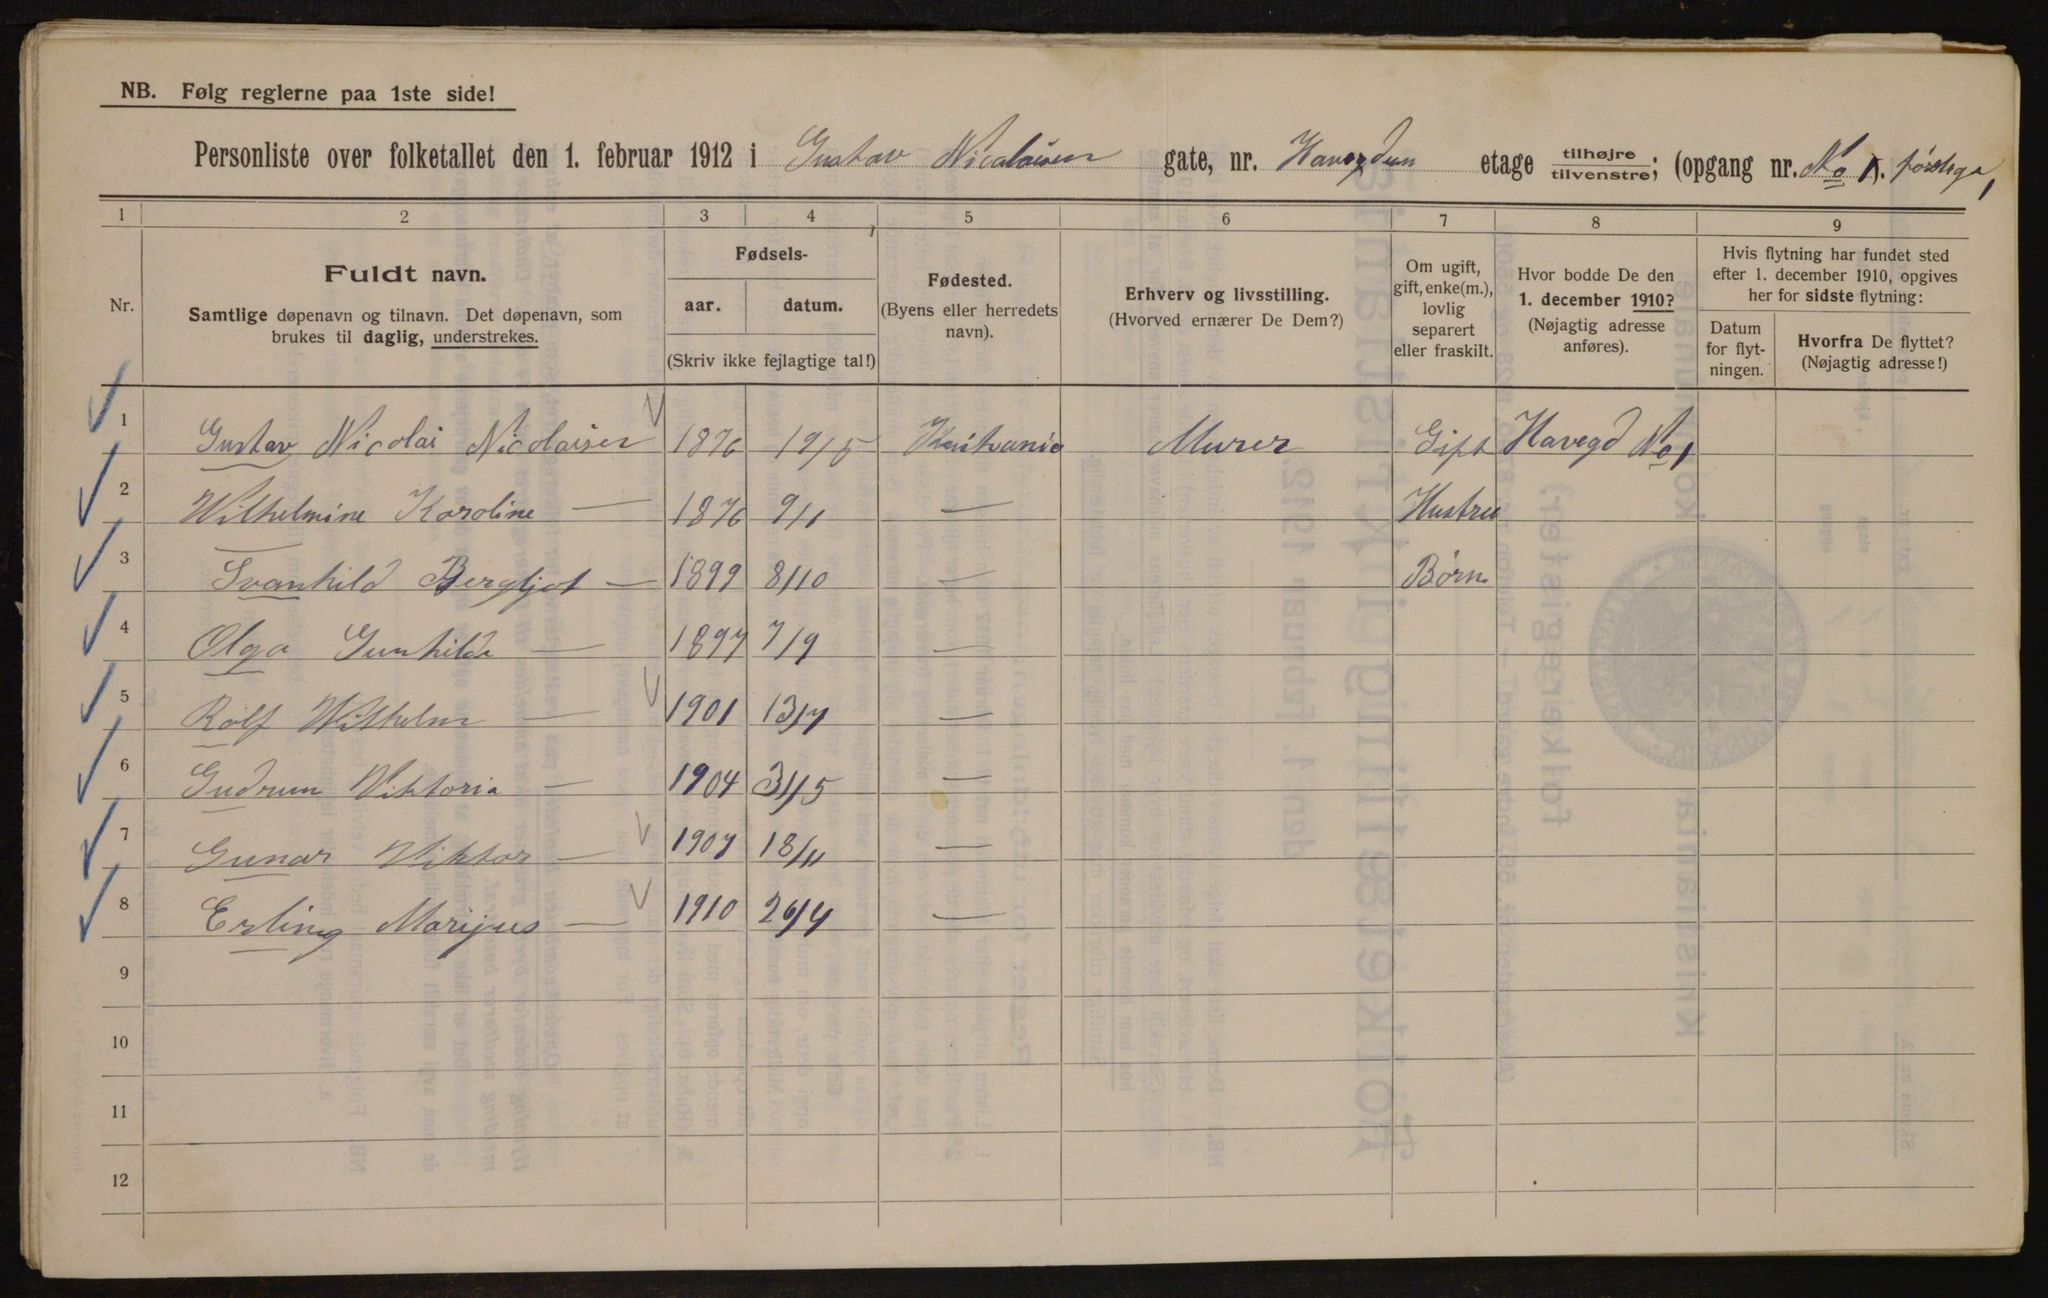 NB. Følg reglerne paa 1ste side!
Personliste over folketallet den 1. februar 1912 i Gustav Nicolaisen gate, nr. Havegden etage tilhøjre/tilvenstre; (opgang nr. No 1).
1 2 3 4 5 6 7 8 9
Nr.
Fuldt navn.
Samtlige døpenavn og tilnavn. Det døpenavn, som
brukes til daglig, understrekes.
Fødsels-
aar. datum.
(Skriv ikke fejlagtige tal!)
Fødested.
(Byens eller herredets
navn).
Erhverv og livsstilling.
(Hvorved ernærer De Dem?)
Om ugift,
gift, enke(m.),
lovlig
separert
eller fraskilt.
Hvor bodde De den
1. december 1910?
(Nøjagtig adresse
anføres).
Hvis flytning har fundet sted
efter 1. december 1910, opgives
her for sidste flytning:
Datum
for flyt-
ningen.
Hvorfra De flyttet?
(Nøjagtig adresse!)
1 Gustav Nicolai Nicolaisen 1876 19/5 Kristiania Murer Gift Havegd No 1
2 Wilhelmine Karoline — 1876 9/1 — Hustru
3 Svanhild Bergljot — 1899 8/10 — Børn
4 Olga Gunhilda — 1897 7/9 —
5 Rolf Wilhelm — 1901 13/7 —
6 Gudrun Viktoria — 1904 31/5 —
7 Gunar Viktor — 1907 18/11 —
8 Erling Marijus — 1910 26/4 —
9
10
11
12